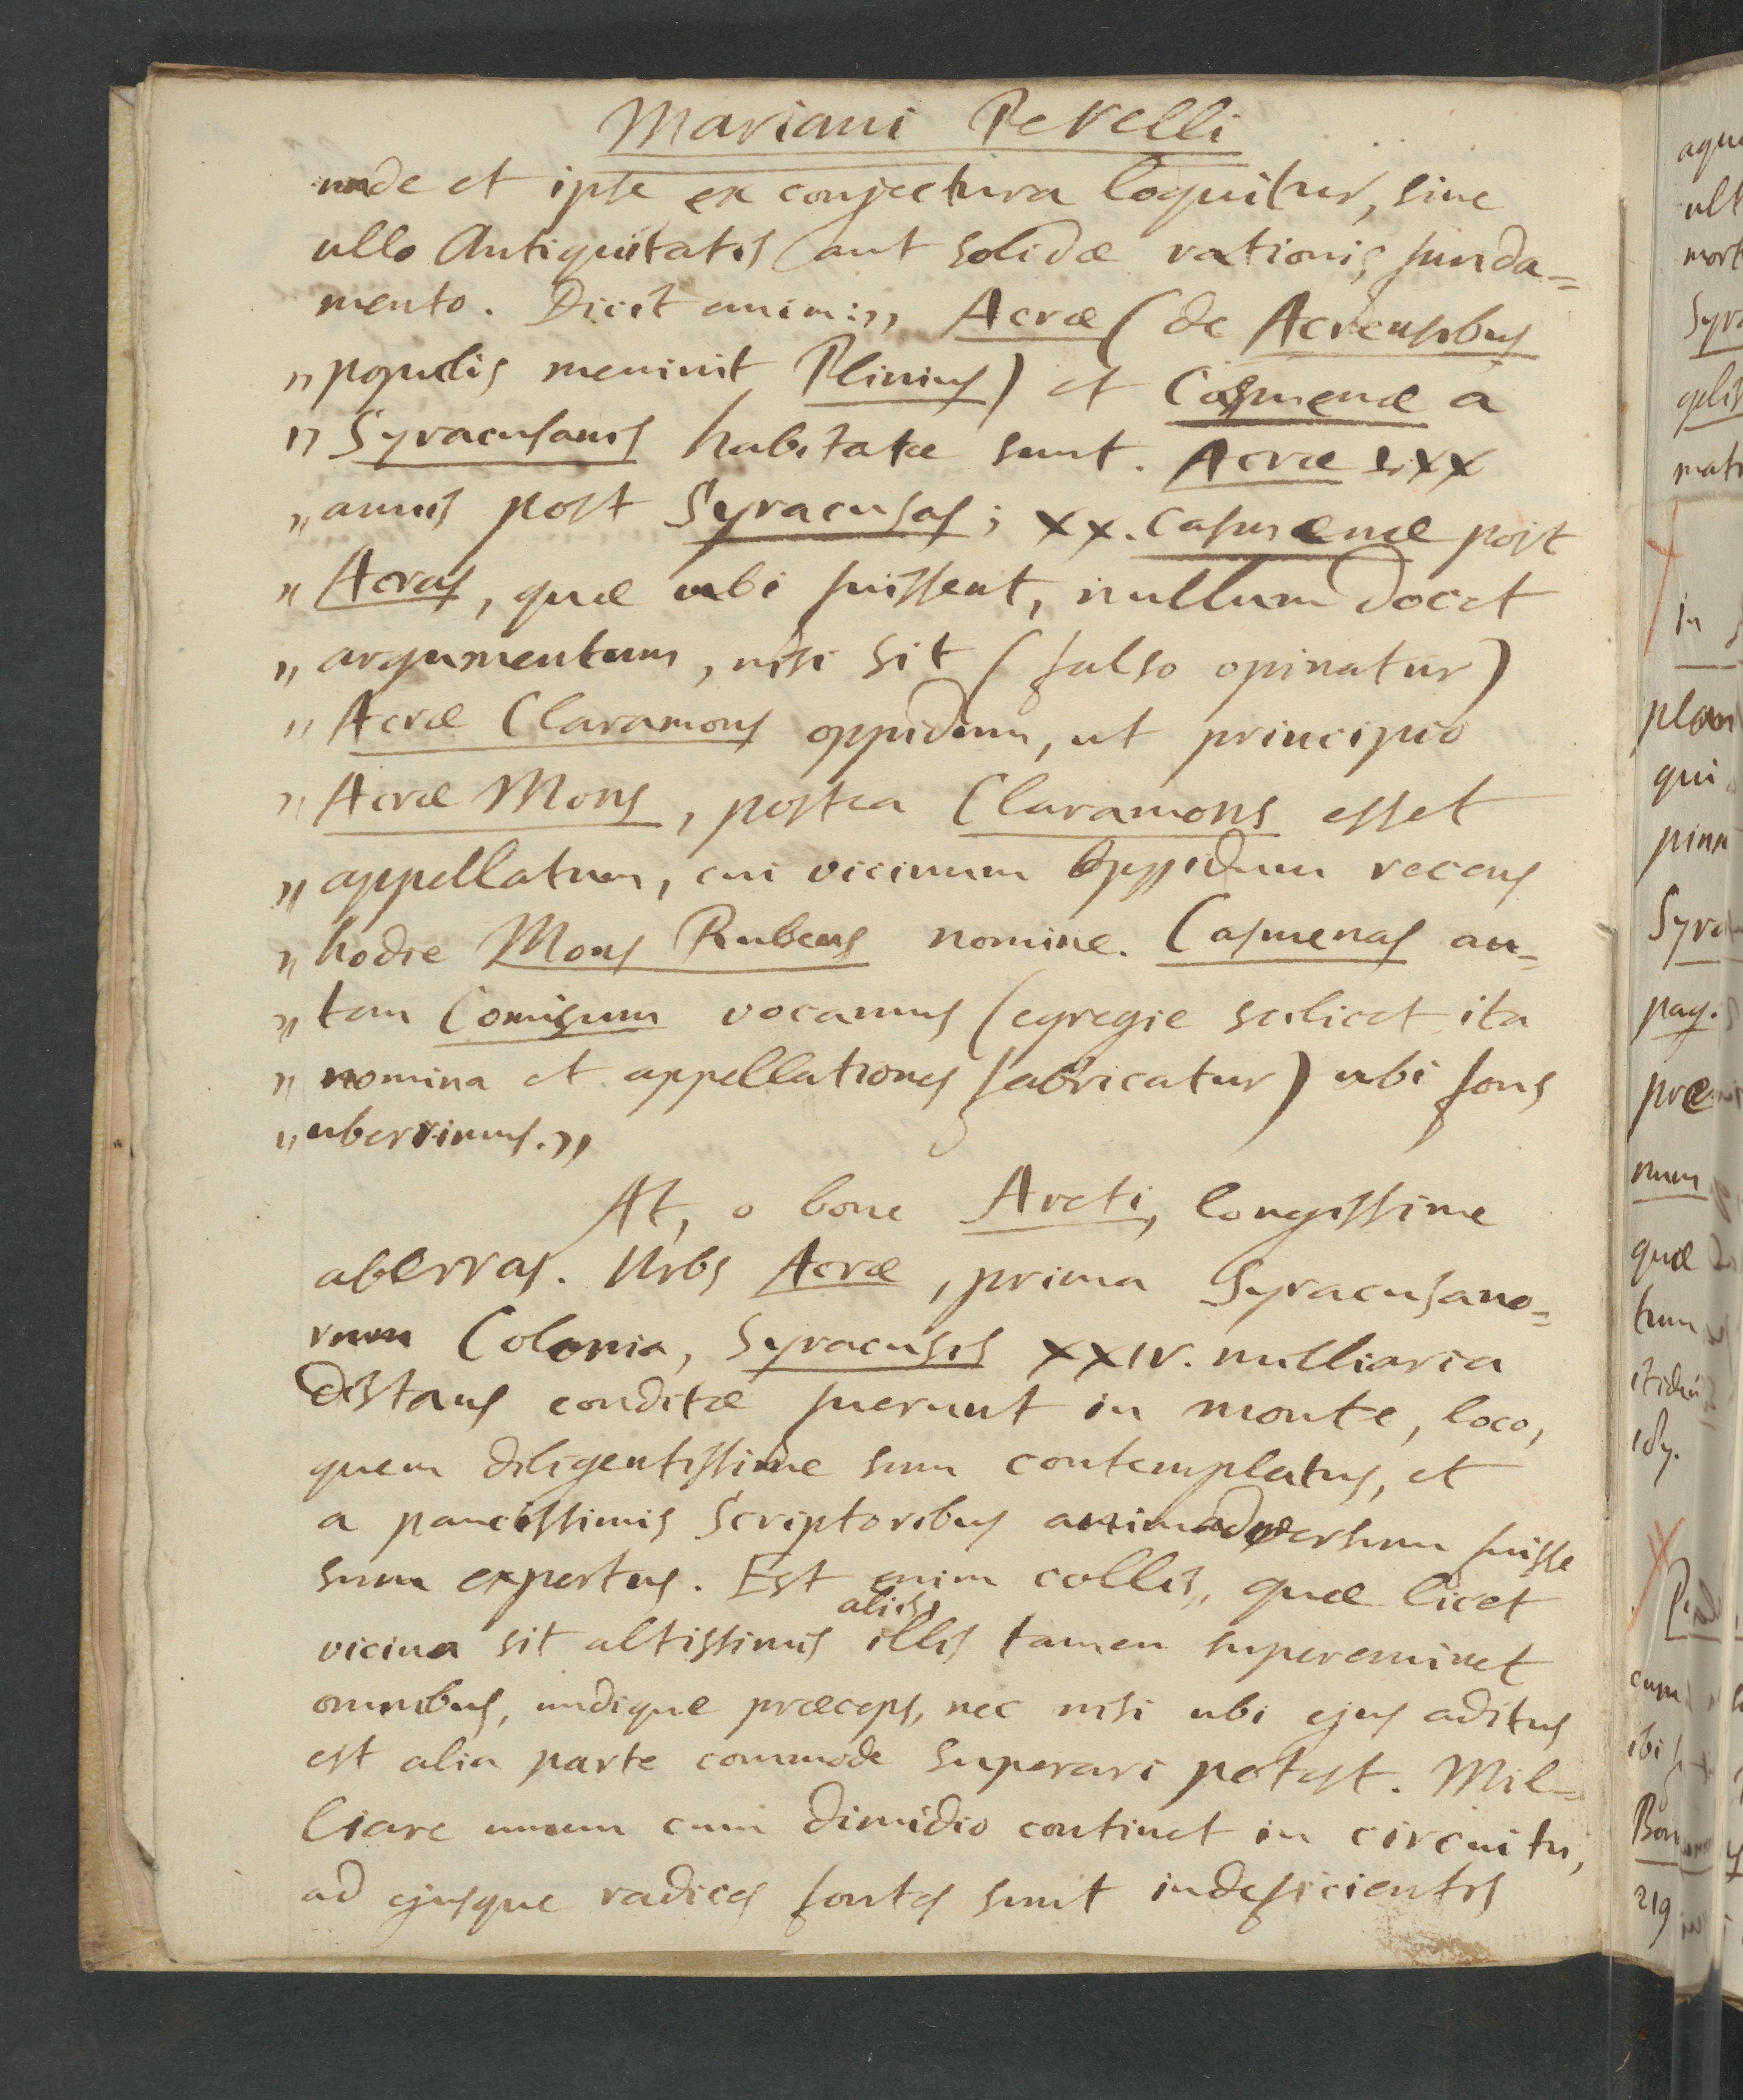 Mariani Perelli
unde et ipse ex conjectura loquitur, sine
ullo Antiquitatis aut solidæ rationis funda=
mento. Dicit enim: „ Acræ (de Acrensibus
„ populis meminit Plinius) et Casmenæ a
„ Syracusanis habitatæ sunt. Acræ LXX
„ annis post Syracusas; XX. Casmenæ post
„ Acras, quæ ubi fuissent, nullum docet
„ argumentum, nisi sit (falso opinatur)
„ Acræ Claramons oppidum, ut principio
„ Acræ Mons, postea Claramons esset
„ appellatum, cui vicinum Oppidum recens
„ hodie Mons Rubeus nomine. Casmenas au=
„ tem Comisum vocamus (egregie scilicet ita
„ nomina et appellationes fabricatur) ubi fons
„ uberrimus. „
At, o bone Areti, longissime
aberras. Urbs Acræ, prima Syracusano=
rum Colonia, Syracusis XXIV. milliaria
distans conditæ fuerunt in monte, loco,
quem diligentissime sum contemplatus, et
a paucissimis Scriptoribus animadversum fuisse
sum expertus. Est enim collis, quæ licet
aliis,
vicina sit altissimis illis tamen supereminet
omnibus, undique præceps, nec nisi ubi ejus aditus
est alia parte commode superari potest. Mil=
liare unum cum dimidio continet in circuitu,
ad ejusque radices fontes sunt indeficientes
mort
in
qui
pag.
quæ
ibi
219